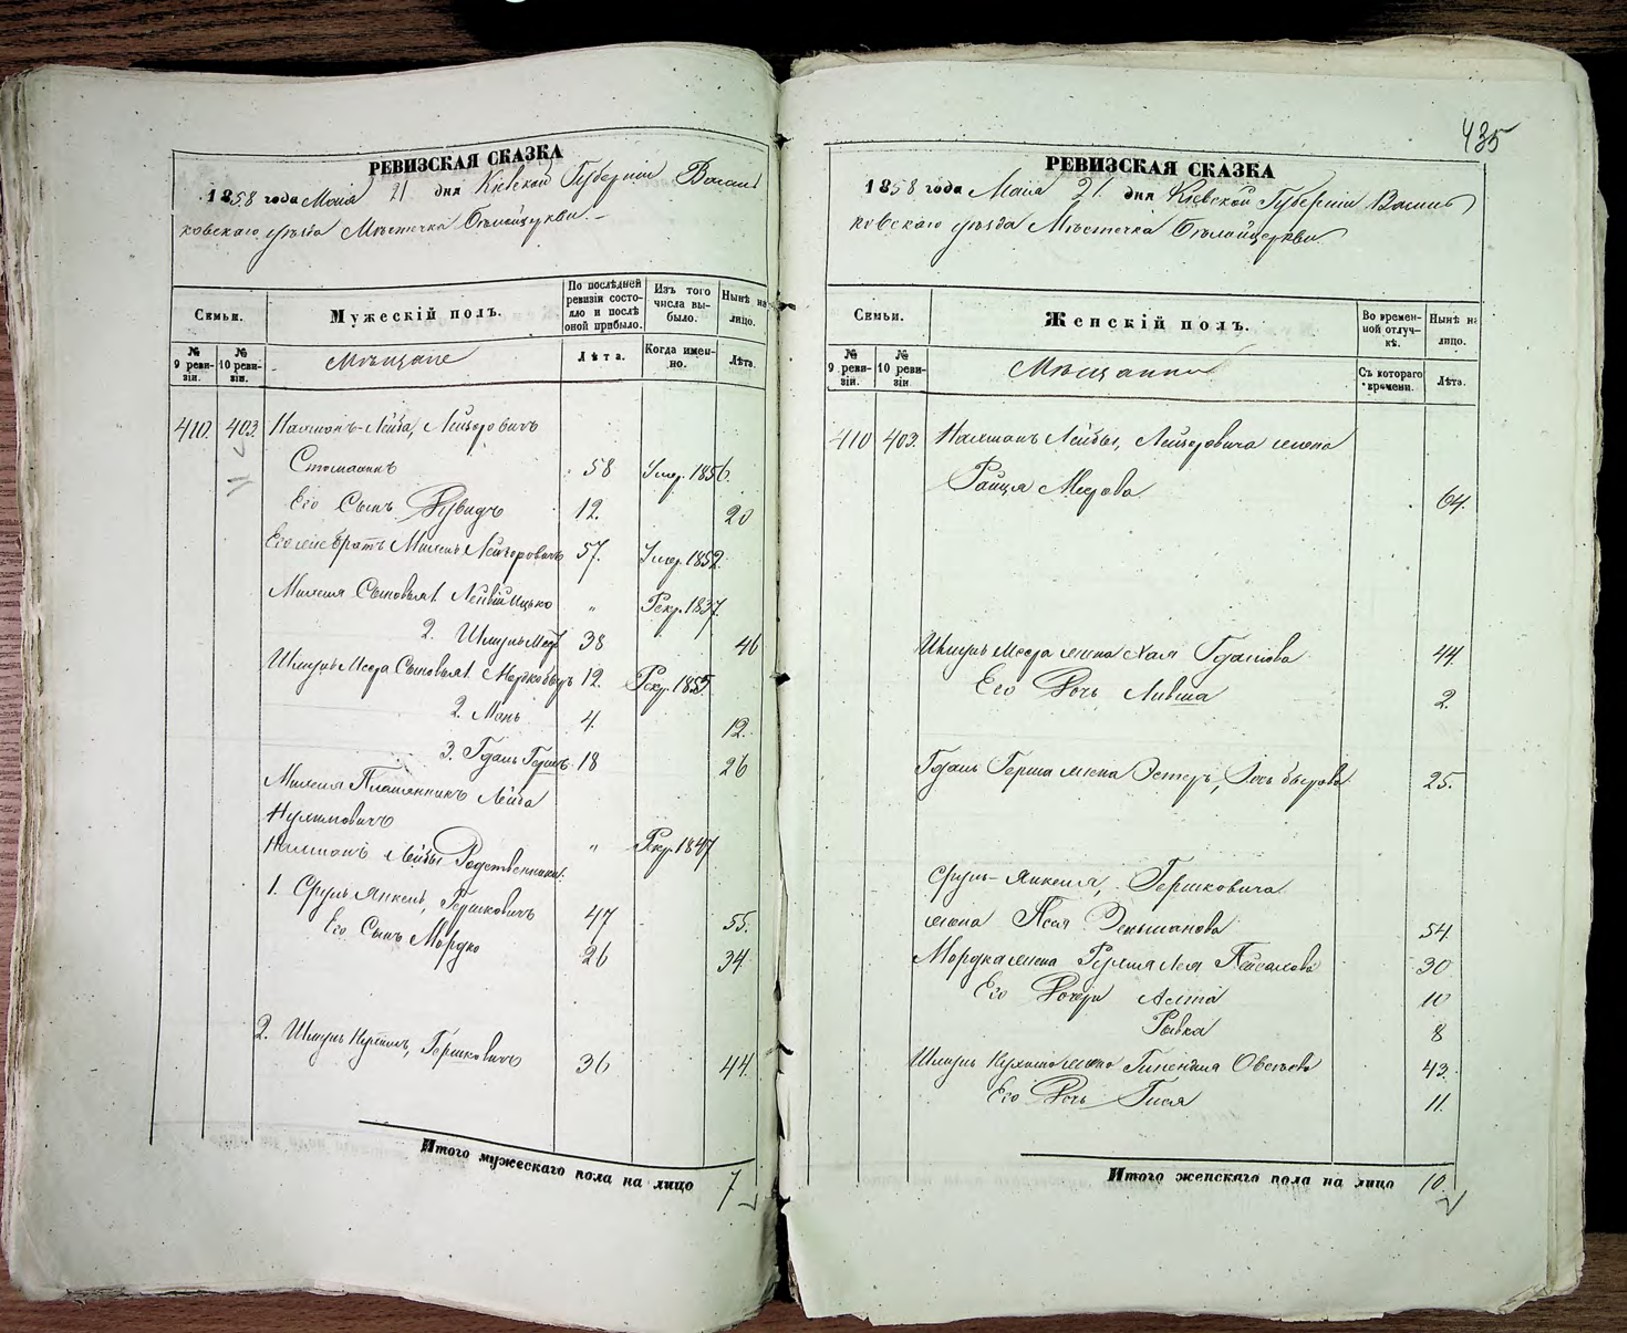 435
РЕВИЗСКАЯ СКАЗКА
1858 года Маія 21 дня Кіевской Губерніи Василь
ковскаго уѣзда Мѣстечка Бѣлойцеркви.
Семьи.
Мужескій полъ.
По послѣдней ревизіи состояло и послѣ оной прибыло.
Изъ того числа выбыло.
Нынѣ на лицо.
№ 9 ревизіи.
№ 10 ревизіи.
Мѣщане
Лѣта.
Когда именно.
Лѣта.
410. 403. Нахманъ-Лейба, Лейзоровичъ
58 Умер. 1856.
Его Сынъ Рувидъ 12. 20
Его же братъ Михель Лейзоровичъ 57. Умер. 1852
Михеля Сыновья 1. Ицько " Рекр. 1837.
2. Шмуль Меер 38 46
Шмуль Меера Сыновья 1. Мордко 12. Рекр. 1855.
2. Мань 4. 12.
3. Гдаль Гершъ 18 26
Михеля Племянникъ Лейба
Нухимовичъ " Рекр. 1847
Нахманъ Лейбы Родственники:
1. Сруль Янкель, Гершковичъ 47 55.
Его Сынъ Мордко 26 34
2. Шмуль Нухимъ, Гершковичъ 36 44.
Итого мужескаго пола на лицо 7
РЕВИЗСКАЯ СКАЗКА
1858 года Маія 21. дня Кіевской Губерніи Василь
ковскаго уѣзда Мѣстечка Бѣлойцеркви
Семьи.
Женскій полъ.
Во временной отлучкѣ.
Нынѣ на лицо.
№ 9 ревизіи.
№ 10 ревизіи
Мѣщанки
Съ котораго времени.
Лѣта.
410 403. Нахманъ Лейбы, Лейзоровича жена
Райця Меерова 64.
Шмуль Меера жена Хая 44.
Его Дочь Ливша 2.
Гдаль Герша жена Эстеръ, 25.
Сруль-Янкеля, Гершковича
жена Песя 54.
Мордка жена Рухля Лея 30
Его Дочери 10
Ривка 8
Шмуль Нухима жена 43.
Его Дочь Гися 11.
Итого женскаго пола на лицо 10.